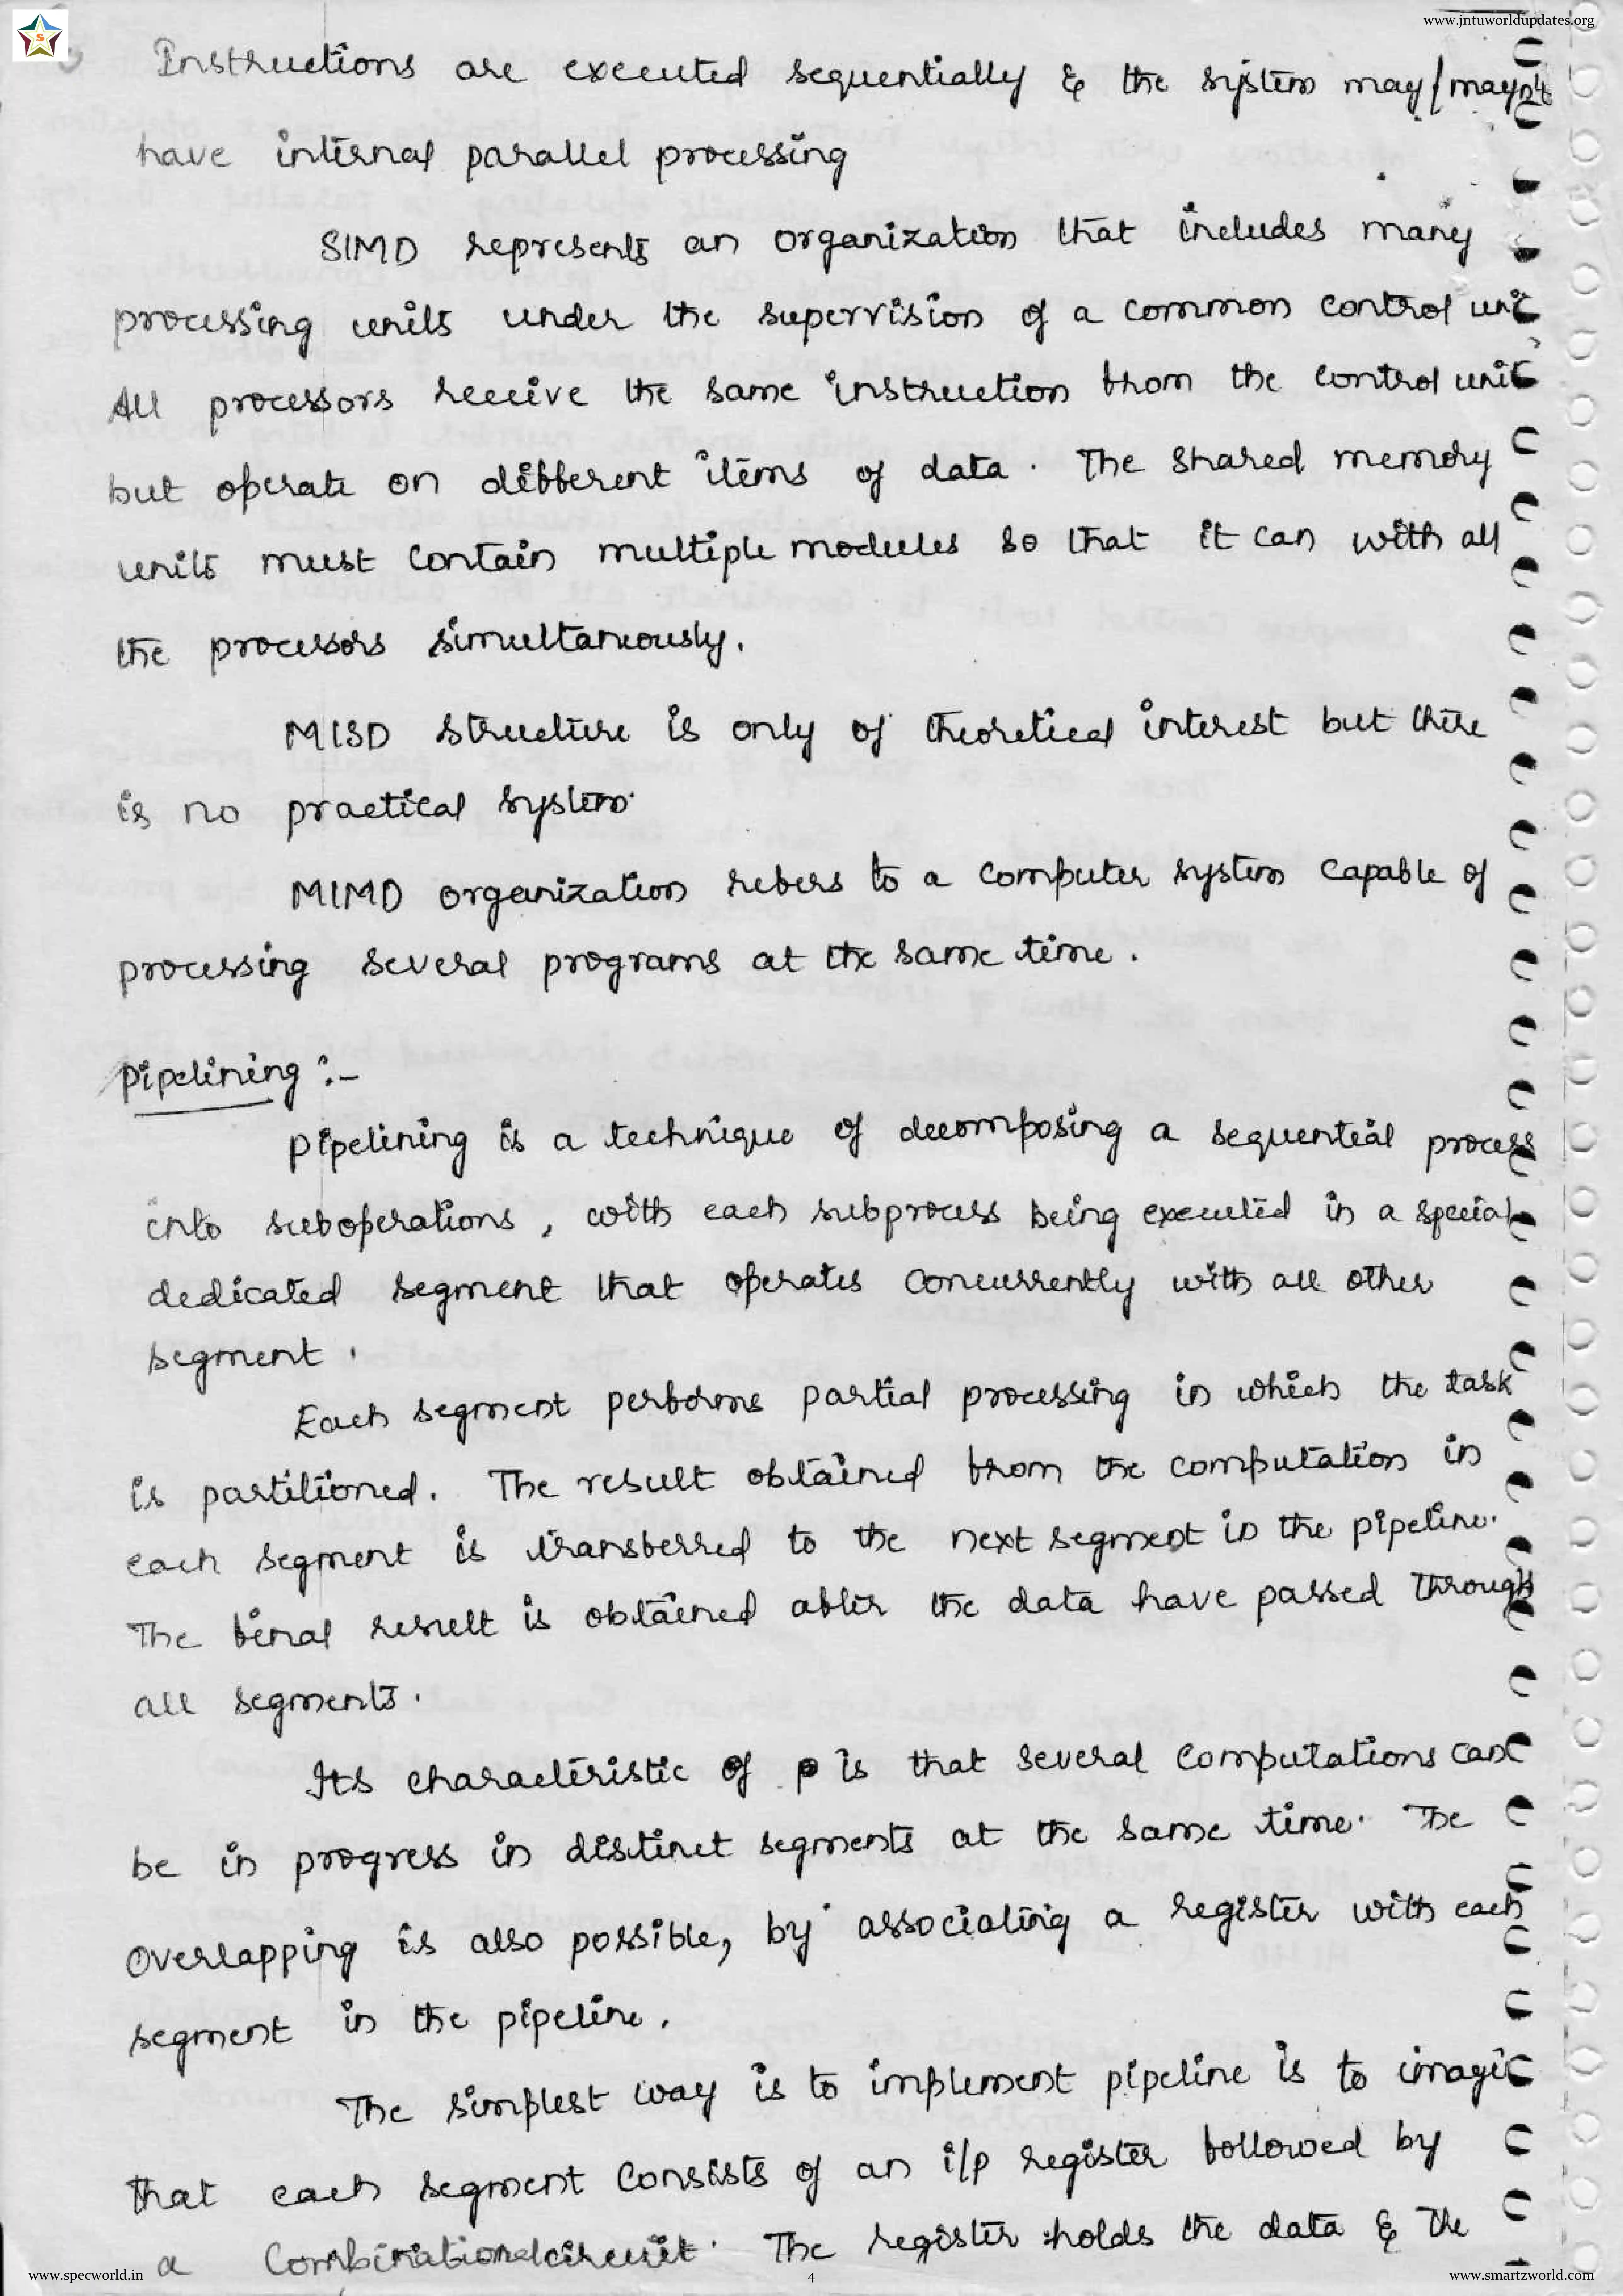 www.jntuworldupdates.org
Instructions are executed sequentially & the system may/mayn't
have internal parallel processing
SIMD represents an organization that includes many
processing units under the supervision of a common control unit
All processors receive the same instruction from the control unit
but operate on different items of data. The shared memory
units must contain multiple modules so that it can with all
the processors simultaneously.
MISD structure is only of theoretical interest but there
is no practical system.
MIMD organization refers to a computer system capable of
processing several programs at the same time.
Pipelining :-
Pipelining is a technique of decomposing a sequential process
into suboperations, with each subprocess being executed in a special
dedicated segment that operates concurrently with all other
segment.
Each segment performs partial processing in which the task
is partitioned. The result obtained from the computation in
each segment is transferred to the next segment in the pipeline.
The final result is obtained after the data have passed through
all segments.
Its characteristic of p is that several computations can
be in progress in distinct segments at the same time. The
overlapping is also possible, by associating a register with each
segment in the pipeline.
The simplest way is to implement pipeline is to imagi
that each segment consists of an i/p register followed by
a Combinationalcircuit. The register holds the data & the
www.specworld.in
4
www.smartzworld.com